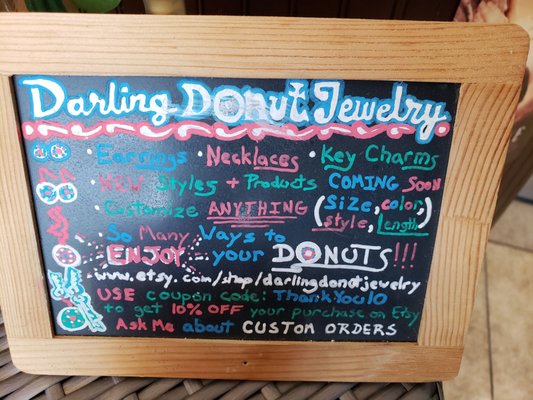 Darling DONUT Jewelry
· Earrings · Necklaces · Key Charms
· NEW Styles + Products COMING SOON
· Customize ANYTHING (Size, color, style, Length)
So Many Ways to
ENJOY your DONUTS!!!
www.etsy.com/shop/darlingdonutjewelry
USE coupon code: ThankYou10
to get 10% OFF your purchase on Etsy
Ask Me about CUSTOM ORDERS